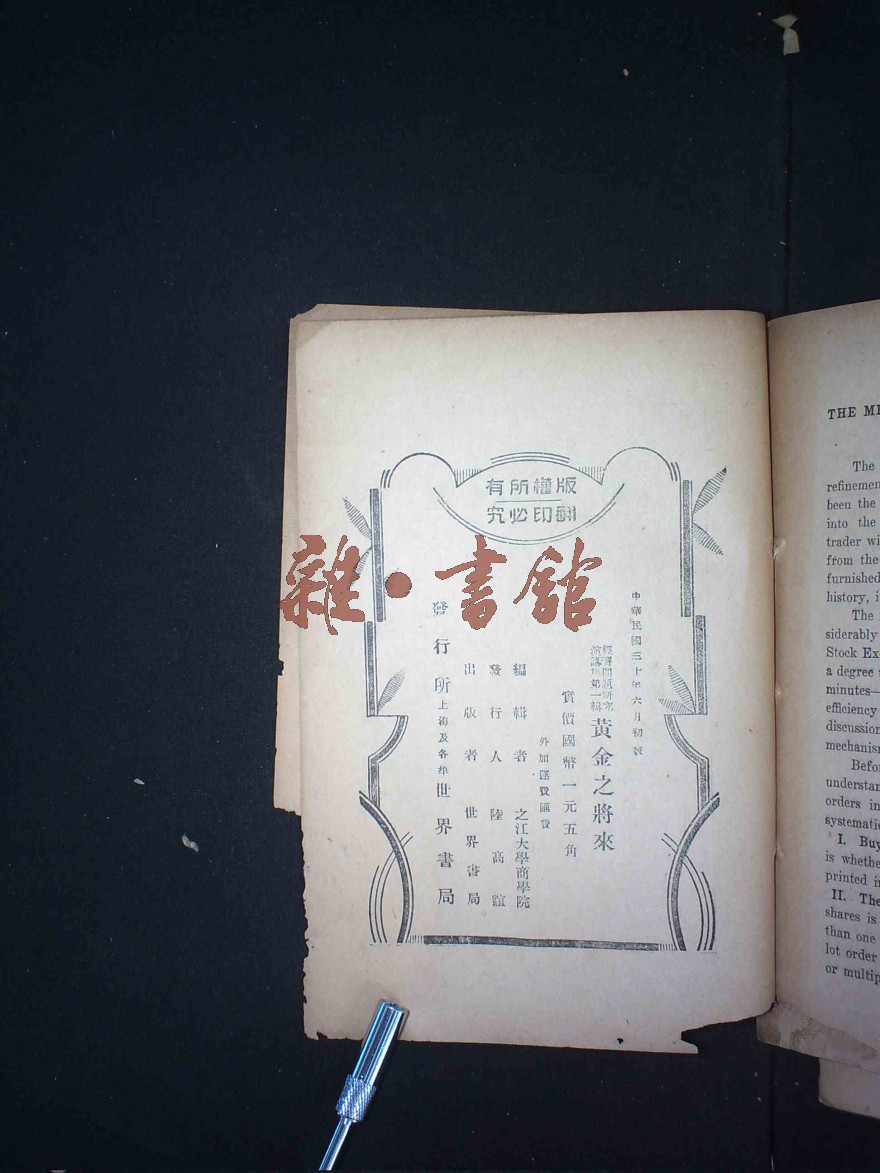 版權所有
翻印必究
中華民國三十年六月初版
經濟問題研究
演講集第一輯
黃金之將來
實價國幣一元五角
外加運費匯費
編輯者 之江大學商學院
發行人 陸高誼
出版者 世界書局
發行所 上海及各埠 世界書局
雜·書館
THE
The
refinemen
been the
into the
trader wi
from the
furnished
history, i
The
siderably
Stock Ex
a degree
minutes—
efficiency
discussion
mechanis
Befor
understan
orders in
systematic
I. Buy
is whethe
printed in
II. The
shares is
than one
lot order
or multip